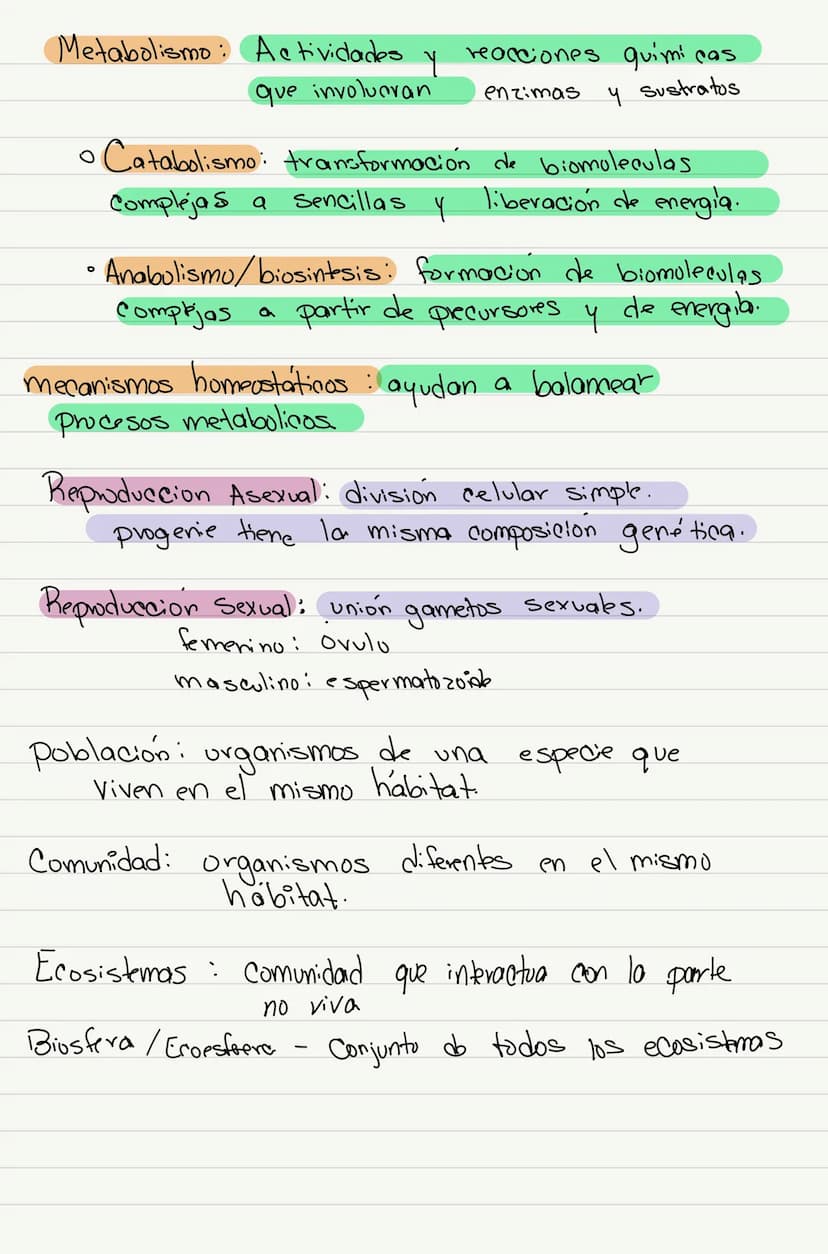 Metabolismo: Actividades y reacciones químicas
que involucran enzimas y sustratos
◦ Catabolismo: transformación de biomoleculas
complejas a sencillas y liberación de energía.
• Anabolismo/biosintesis: formacion de biomoleculas
complejas a partir de precursores y de energía.
mecanismos homeostáticos: ayudan a balancear
procesos metabolicos
Reproduccion Asexual: división celular simple.
progenie tiene la misma composición genética.
Reproducción Sexual: unión gametos sexuales.
femenino: óvulo
masculino: espermatozoide
Población: organismos de una especie que
viven en el mismo hábitat.
Comunidad: organismos diferentes en el mismo
hábitat.
Ecosistemas: comunidad que interactua con la parte
no viva
Biosfera / - Conjunto de todos los ecosistemas